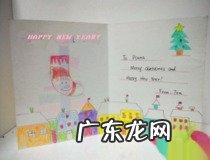 HAPPY NEW YEAR!
To
Merry Christmas and
Happy New Year!
From
广东龙网